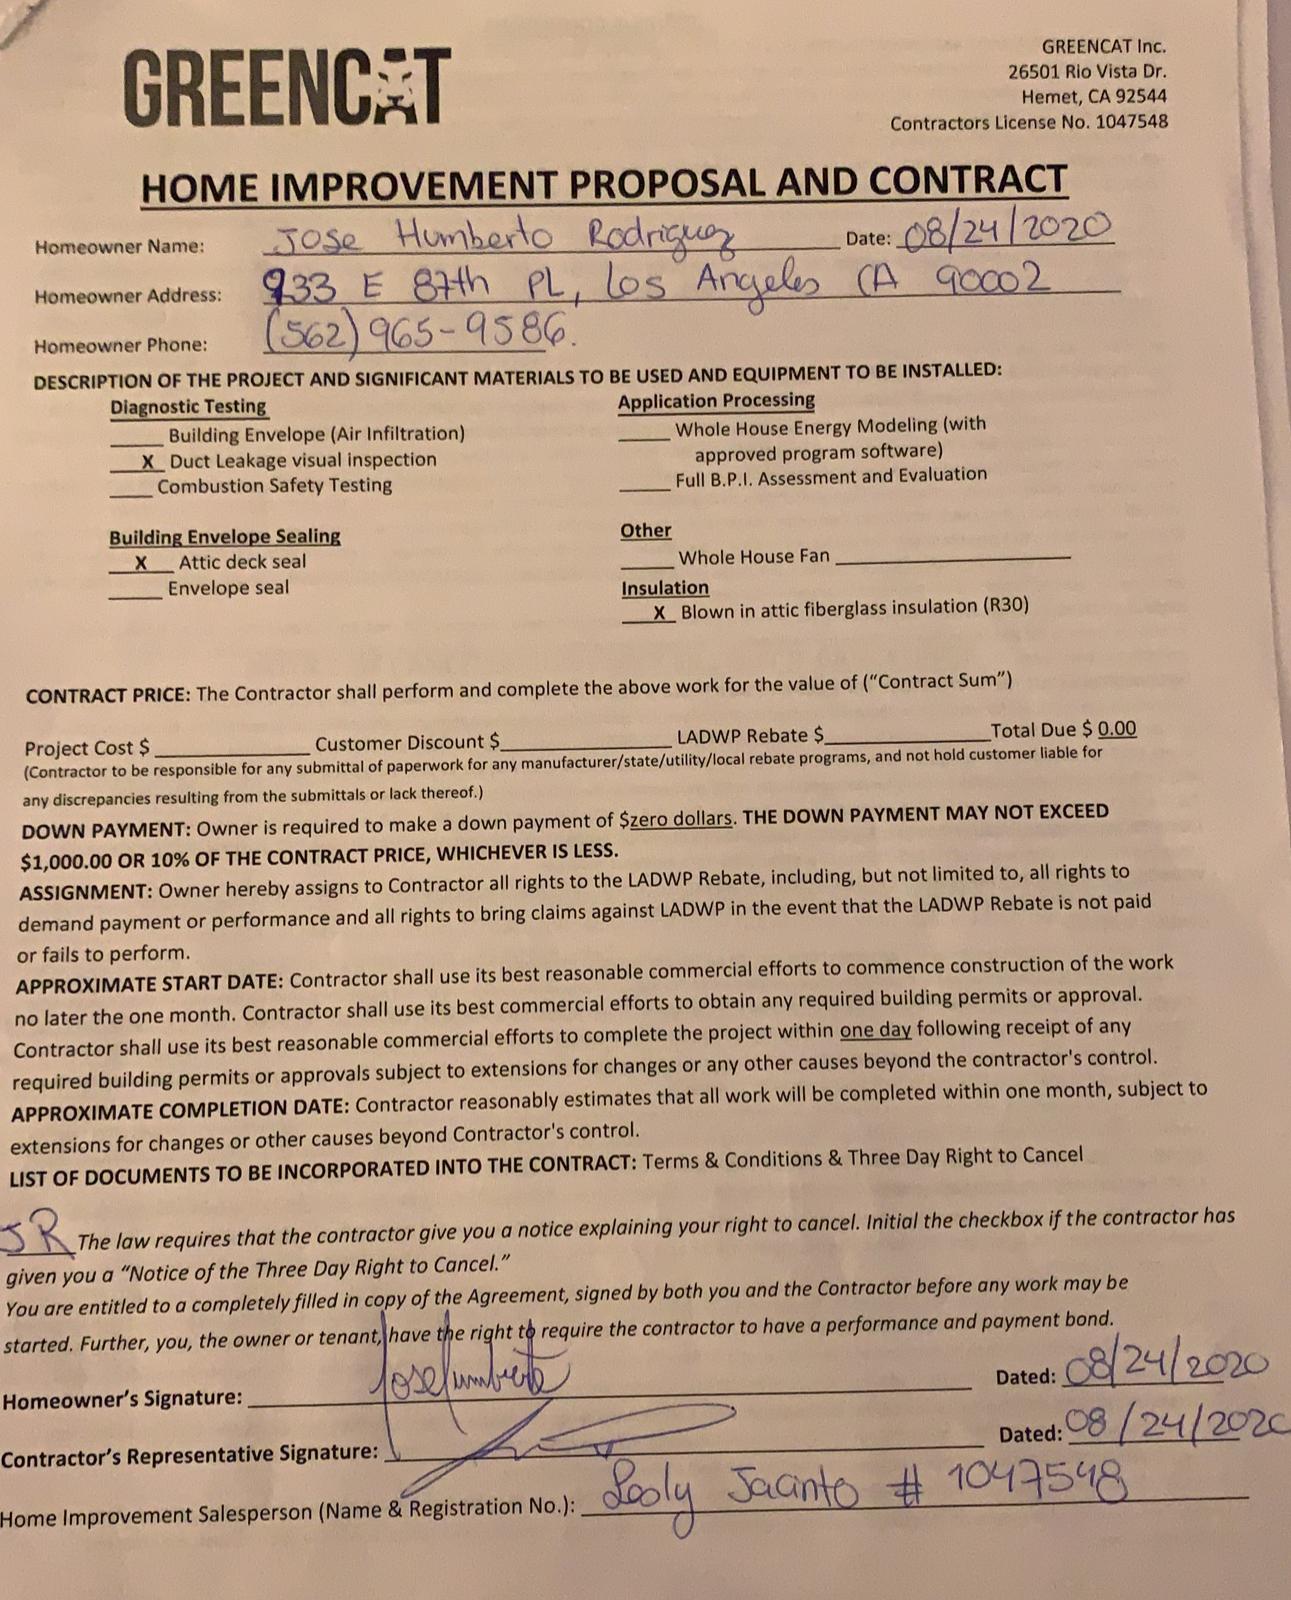 GREENCAT
GREENCAT Inc.
26501 Rio Vista Dr.
Hemet, CA 92544
Contractors License No. 1047548
HOME IMPROVEMENT PROPOSAL AND CONTRACT
Homeowner Name: Jose Humberto Rodriguez Date: 08/24/2020
Homeowner Address: 933 E 87th PL, Los Angeles CA 90002
Homeowner Phone: (562) 965-9586.
DESCRIPTION OF THE PROJECT AND SIGNIFICANT MATERIALS TO BE USED AND EQUIPMENT TO BE INSTALLED:
Diagnostic Testing
Building Envelope (Air Infiltration)
X Duct Leakage visual inspection
Combustion Safety Testing
Application Processing
Whole House Energy Modeling (with
approved program software)
Full B.P.I. Assessment and Evaluation
Building Envelope Sealing
X Attic deck seal
Envelope seal
Other
Whole House Fan
Insulation
X Blown in attic fiberglass insulation (R30)
CONTRACT PRICE: The Contractor shall perform and complete the above work for the value of ("Contract Sum")
Project Cost $ Customer Discount $ LADWP Rebate $ Total Due $ 0.00
(Contractor to be responsible for any submittal of paperwork for any manufacturer/state/utility/local rebate programs, and not hold customer liable for
any discrepancies resulting from the submittals or lack thereof.)
DOWN PAYMENT: Owner is required to make a down payment of $zero dollars. THE DOWN PAYMENT MAY NOT EXCEED
$1,000.00 OR 10% OF THE CONTRACT PRICE, WHICHEVER IS LESS.
ASSIGNMENT: Owner hereby assigns to Contractor all rights to the LADWP Rebate, including, but not limited to, all rights to
demand payment or performance and all rights to bring claims against LADWP in the event that the LADWP Rebate is not paid
or fails to perform.
APPROXIMATE START DATE: Contractor shall use its best reasonable commercial efforts to commence construction of the work
no later the one month. Contractor shall use its best commercial efforts to obtain any required building permits or approval.
Contractor shall use its best reasonable commercial efforts to complete the project within one day following receipt of any
required building permits or approvals subject to extensions for changes or any other causes beyond the contractor's control.
APPROXIMATE COMPLETION DATE: Contractor reasonably estimates that all work will be completed within one month, subject to
extensions for changes or other causes beyond Contractor's control.
LIST OF DOCUMENTS TO BE INCORPORATED INTO THE CONTRACT: Terms & Conditions & Three Day Right to Cancel
JR The law requires that the contractor give you a notice explaining your right to cancel. Initial the checkbox if the contractor has
given you a "Notice of the Three Day Right to Cancel."
You are entitled to a completely filled in copy of the Agreement, signed by both you and the Contractor before any work may be
started. Further, you, the owner or tenant, have the right to require the contractor to have a performance and payment bond.
Homeowner's Signature: Dated: 08/24/2020
Contractor's Representative Signature: Dated: 08/24/2020
Home Improvement Salesperson (Name & Registration No.): Lesly Jacinto # 1047548